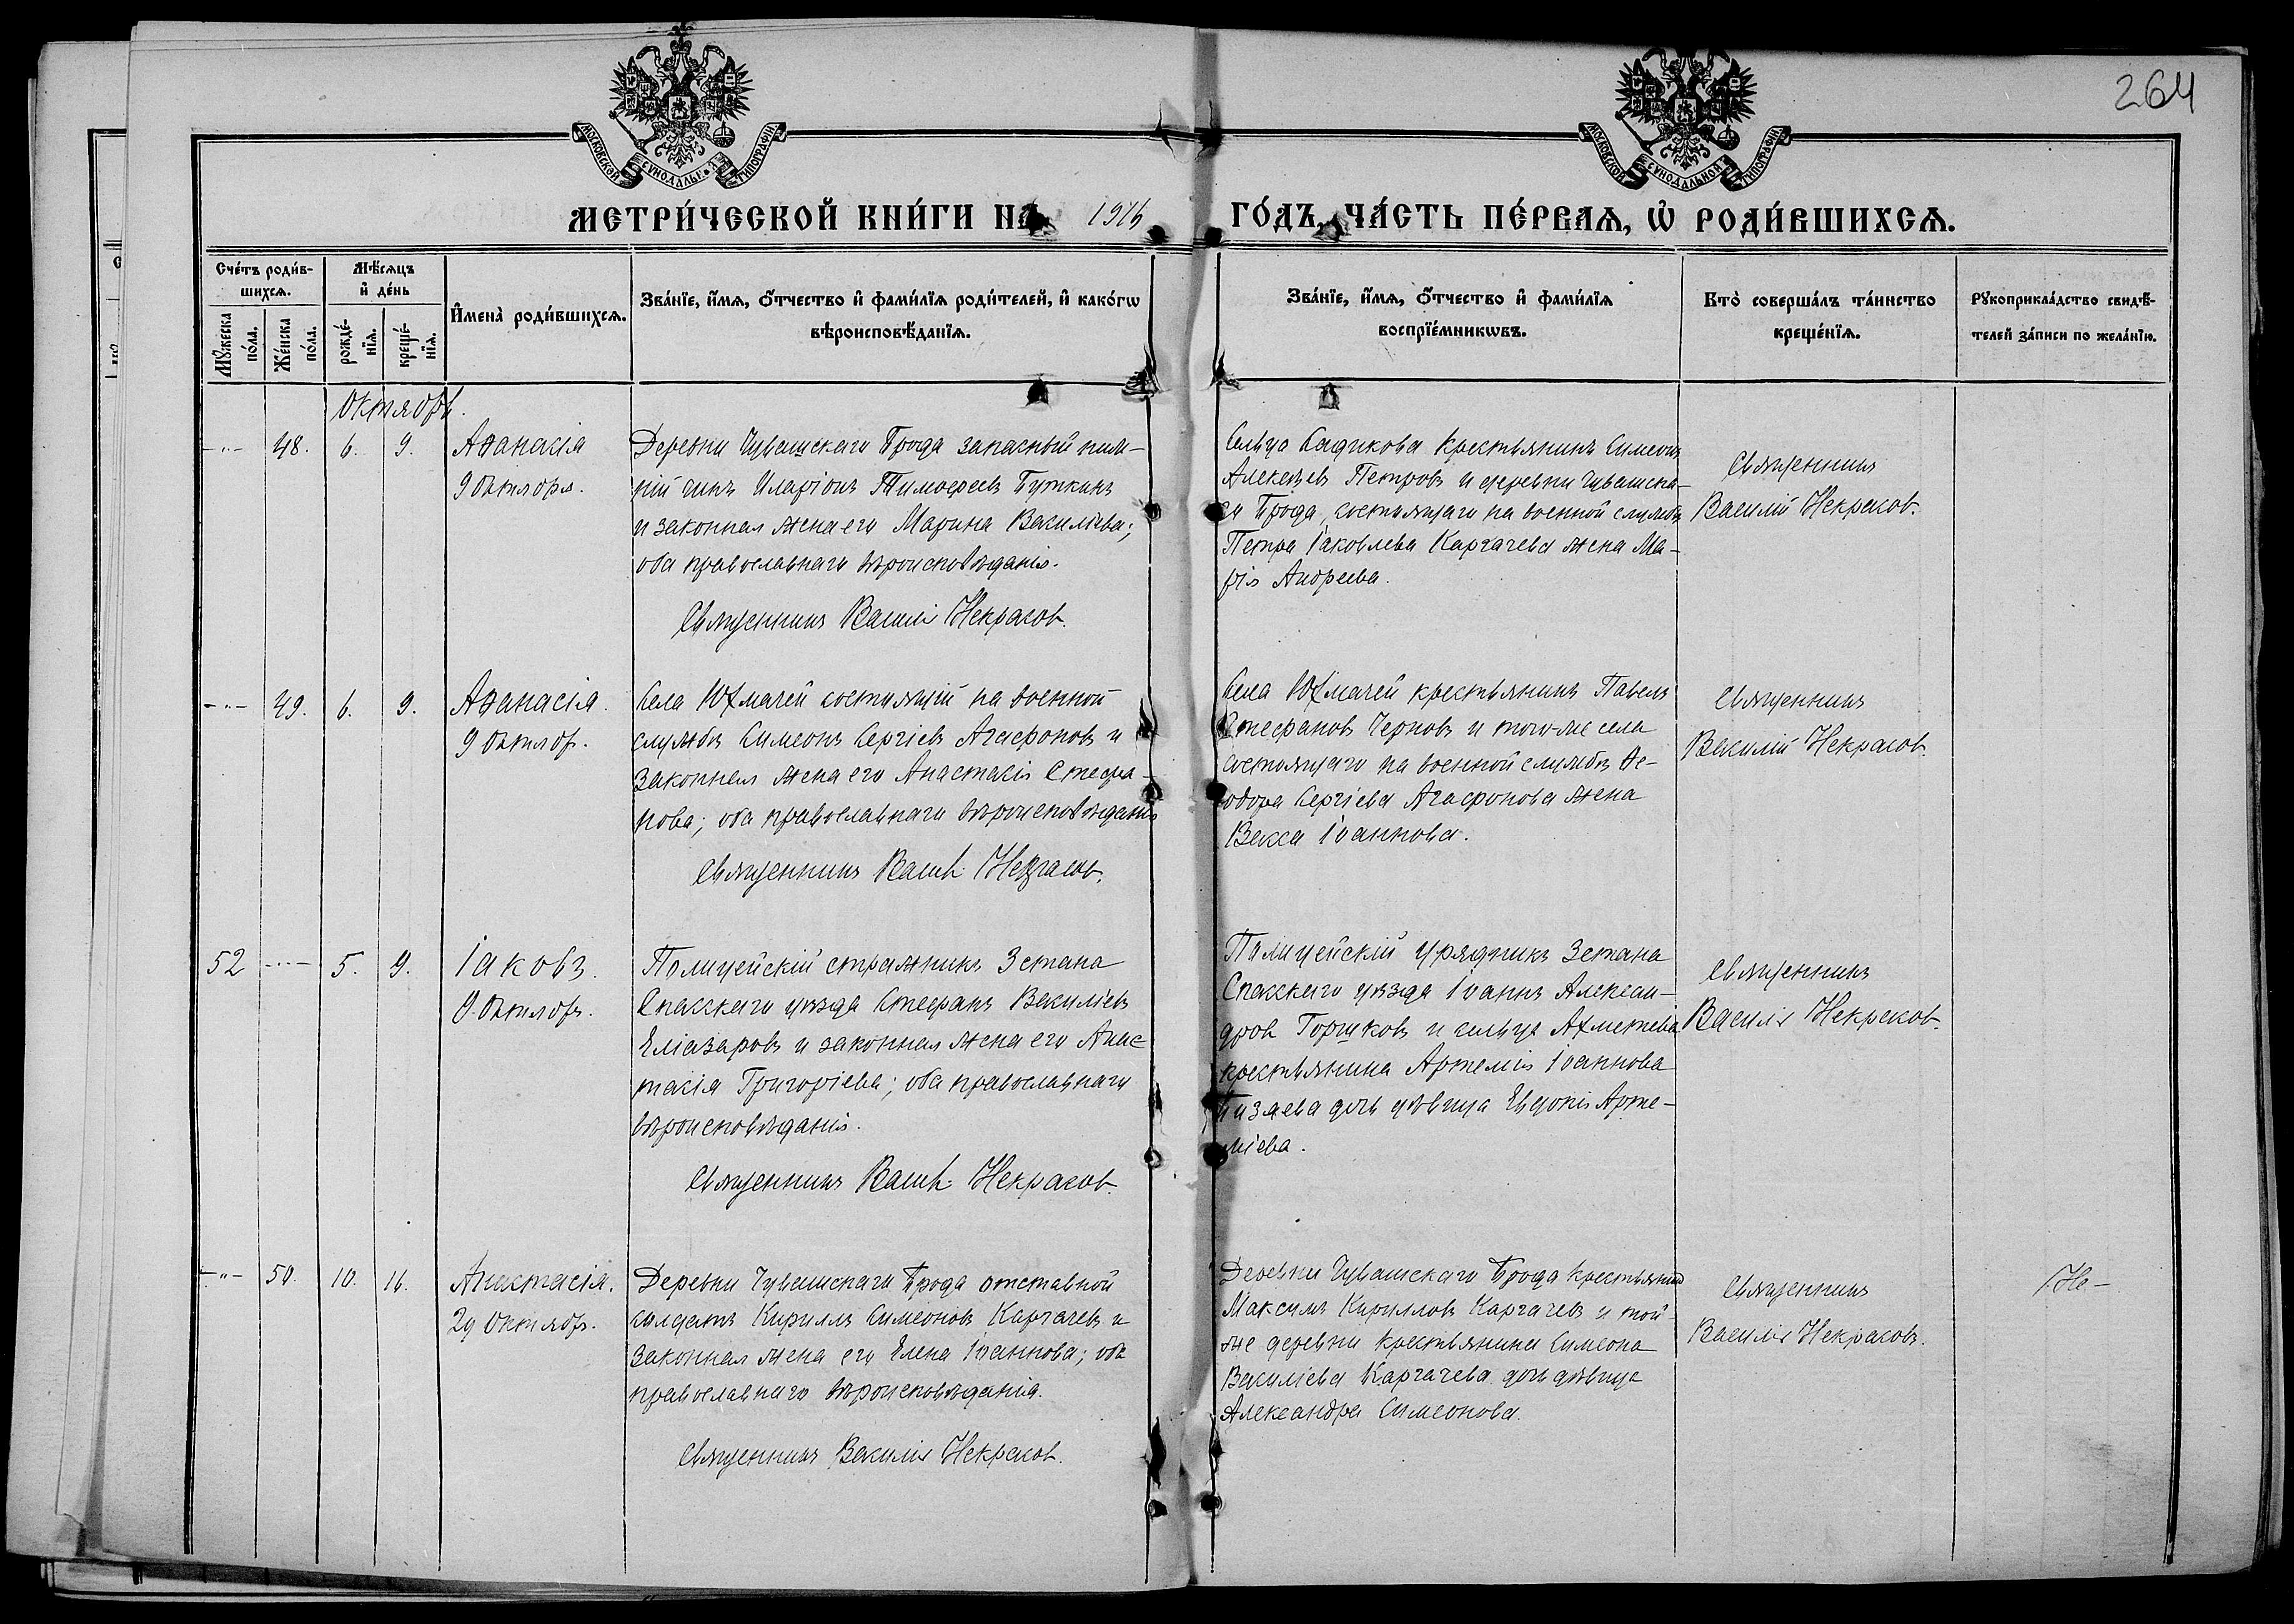 264
МОСКОВСКОЙ СѴНОДАЛЬН. ТИПОГРАФІИ.
МОСКОВСКОЙ СѴНОДАЛЬНОЙ ТИПОГРАФІИ.
МЕТРИ́ЧЕСКОЙ КНИ́ГИ НА 1916 ГО́ДЪ, ЧА́СТЬ ПЕ́РВАЯ, Ѡ РОДИ́ВШИХСЯ.
Сче́тъ роди́в-
шихся.
Мѣ́сяцъ
и де́нь
Мꙋ́жеска
по́ла.
Же́нска
по́ла.
рожде́-
нїя.
креще́-
нїя.
Имена̀ роди́вшихся.
Зва́нїе, и́мя, о́тчество и фами́лїя роди́телей, и како́гѡ
вѣроисповѣ́данїя.
Зва́нїе, и́мя, о́тчество и фами́лїя
воспрїе́мникѡвъ.
Кто̀ соверша́лъ та́инство
креще́нїя.
Рꙋкоприкла́дство свидѣ́-
телей за́писи по жела́нїю.
Октябрь.
-"- 48. 6. 9.
Аѳанасія
9 Октября.
Деревни Чувашскаго Брода запасный ниж-
ній чинъ Иларіонъ Тимоѳеевъ Буткинъ
и законная жена его Марина Василіева;
оба православнаго вѣроисповѣданія.
Священникъ Василій Некрасовъ.
Сельца Садикова крестьянинъ Симеонъ
Алексѣевъ Петровъ и деревни Чувашска-
го Брода, состоящаго на военной службѣ
Петра Іаковлева Каргачева жена Ма-
рія Андреева.
Священникъ
Василій Некрасовъ.
-"- 49. 6. 9.
Аѳанасія.
9 Октябр.
Села Юхмачей состоящій на военной
службѣ Симеонъ Сергіевъ Агафоновъ и
законная жена его Анастасія Стефа-
нова; оба православнаго вѣроисповѣданія
Священникъ Васил. Некрасовъ.
Села Юхмачей крестьянинъ Павелъ
Стефановъ Черновъ и того-же села
состоящаго на военной службѣ Ѳе-
одора Сергіева Агафонова жена
Васса Іоаннова.
Священникъ
Василій Некрасовъ.
52 -"- 5. 9.
Іаковъ.
9. Октябр.
Полицейскій стражникъ 3 стана
Спасскаго уѣзда Стефанъ Василіевъ
Еліазаровъ и законная жена его Анас
тасія Григоріева; оба православнаго
вѣроисповѣданія.
Священникъ Васил. Некрасовъ.
Полицейскій урядникъ 3 стана
Спасскаго уѣзда Іоаннъ Алексан-
дровъ Горшковъ и сельца Ахметева
крестьянина Артемія Іоаннова
дочь дѣвица Евдокія Арте-
міева.
Священникъ
Василій Некрасовъ.
-"- 50. 10. 16.
Анастасія.
29 Октябр.
Деревни Чувашскаго Брода отставной
солдатъ Кириллъ Симеоновъ Каргачевъ и
законная жена его Елена Іоаннова; оба
православнаго вѣроисповѣданія.
Священникъ Василій Некрасовъ.
Деревни Чувашскаго Брода крестьянинъ
Максимъ Кирилловъ Каргачевъ и той-
же деревни крестьянина Симеона
Василіева Каргачева дочь дѣвица
Александра Симеонова.
Священникъ
Василій Некрасовъ.